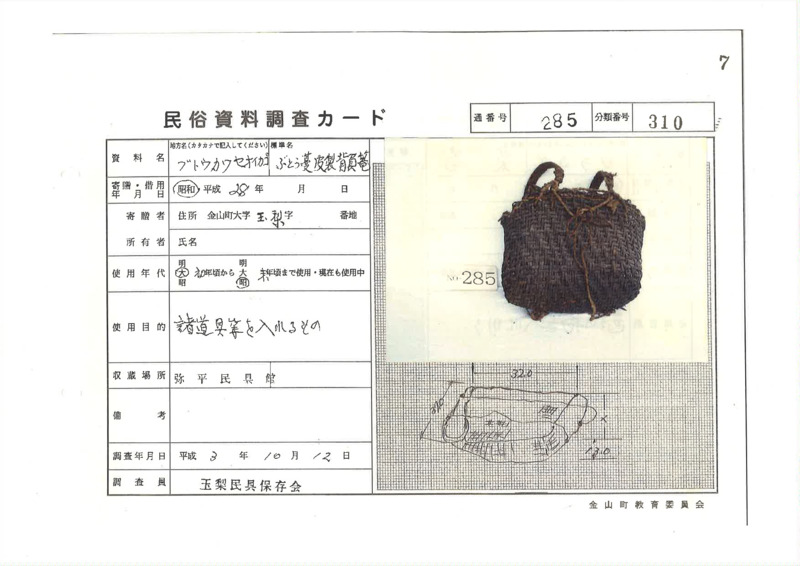 7
民俗資料調査カード
通番号 285 分類番号 310
資料名 地方名(カタカナで記入してください) 標準名
ブドウカワセオイカゴ ぶどう蔓皮製背負籠
寄贈・借用年月日 昭和・平成 28年 月 日
寄贈者 住所 金山町大字玉梨字 番地
所有者 氏名
使用年代 明大昭 初年頃から 明大昭 末年頃まで使用・現在も使用中
使用目的 諸道具等を入れるもの
収蔵場所 弥平民具館
備考
調査年月日 平成 3年 10月 12日
調査員 玉梨民具保存会
No. 285
32.0
13.0
金山町教育委員会